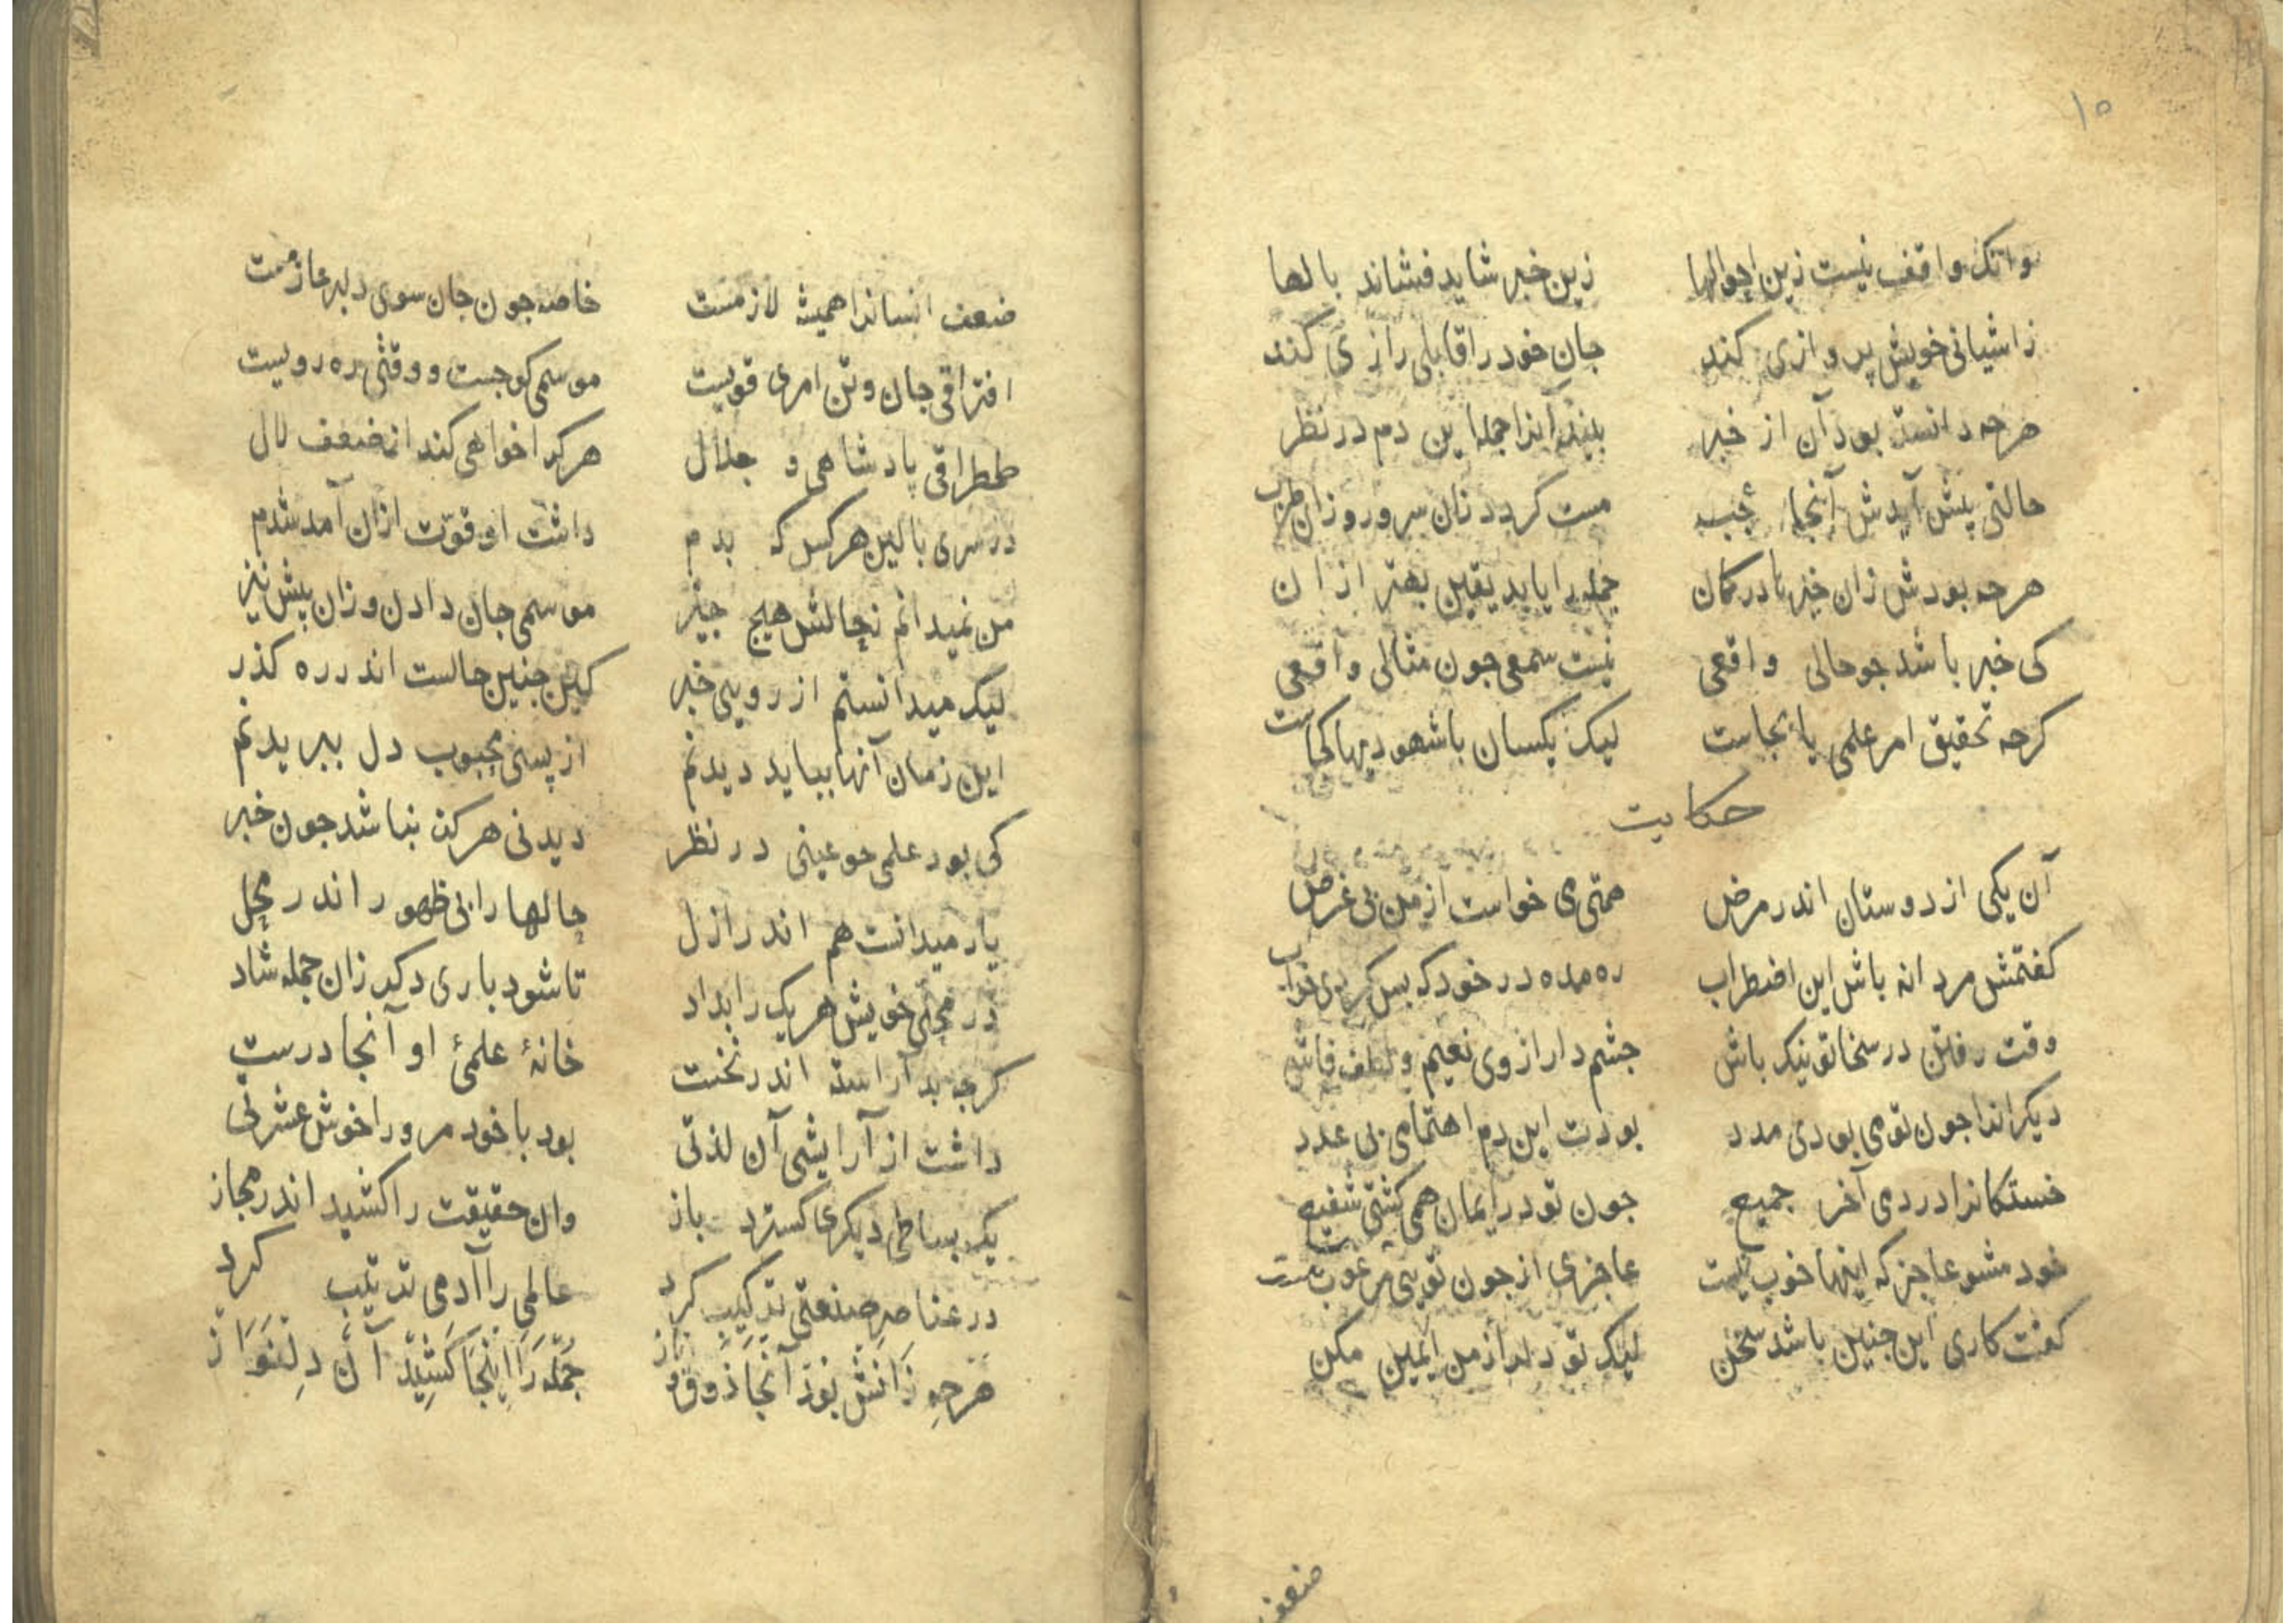 ۱۵
وانک واقف نیست زین احوالها زین خبر شاید فشاند بالها
زاشیانی خویش پروازی کند جان خود را قابلی رازی کند
هرچه دانسته بود آن از خبر بیند آنرا جمله این دم در نظر
حالتی پیش آیدش آنجا عجب مست کردد زان سرور و زان طرب
هرچه بودش زان خبر تا در کمان جمله را یابد یقین بهتر ازان
کی خبر باشد جو حالی واقعی نیست سمعی جون مثالی واقعی
کرچه تحقیق امر علمی پا بجاست لیک یکسان با شهودیها کجاست
حکایت
آن یکی از دوستان اندر مرض همتی می خواست از من بی غرض
کفتمش مردانه باش این اضطراب ره مده در خود که بس کردی خراب
وقت رفتن در سخا تو نیک باش جشم دار از وی نعیم و لطف فاش
دیکرانرا جون تو می بودی مدد بودت این دم اهتمامی بی عدد
خستکانرا در دمی آخر جمیع جون تو در ایمان همی کشتی شفیع
خود مشو عاجز که اینها خوب نیست عاجزی از جون تویی مرغوب نیست
کفت کاری این جنین باشد سخن لیک تو دل را ز من ایمین مکن
ضعف
ضعف انسانرا همیشه لازمست خاصه جون جان سوی دلبر عازمست
افتراقی جان و تن امری قویست موسمی کوجست و وقتی ره رویست
طمطراقی پادشاهی و جلال هرکرا خواهی کند از ضعف لال
در سری بالین هرکس که بدم داشت او قوت ازان آمد شدم
من نمیدانم بحالش هیچ جیز موسمی جان دادن و زان پیش نیز
لیک میدانستم از رویی خبر کین جنین حالست اندر ره کذر
این زمان آنها بباید دیدنم از پسی محبوب دل ببریدنم
کی بود علمی جو عینی در نظر دیدنی هرکز نباشد جون خبر
یار میدانست هم اندر ازل حالها را بی ظهور اندر محل
در محلی خویش هریک را بداد تا شود باری دکر زان جمله شاد
کرچه بد آراسته اندر نخست خانهٔ علمیٔ او آنجا درست
داشت از آرایشی آن لذتی بود با خود مر ورا خوش عشرتی
یک بساطی دیکری کسترد باز وان حقیقت را کشید اندر مجاز
در عناصر صنعتی ترکیب کرد عالمی را آدمی ترتیب کرد
هرچه زانش بود آنجا ذوق و ناز جمله را اینجا کشید آن دلنواز